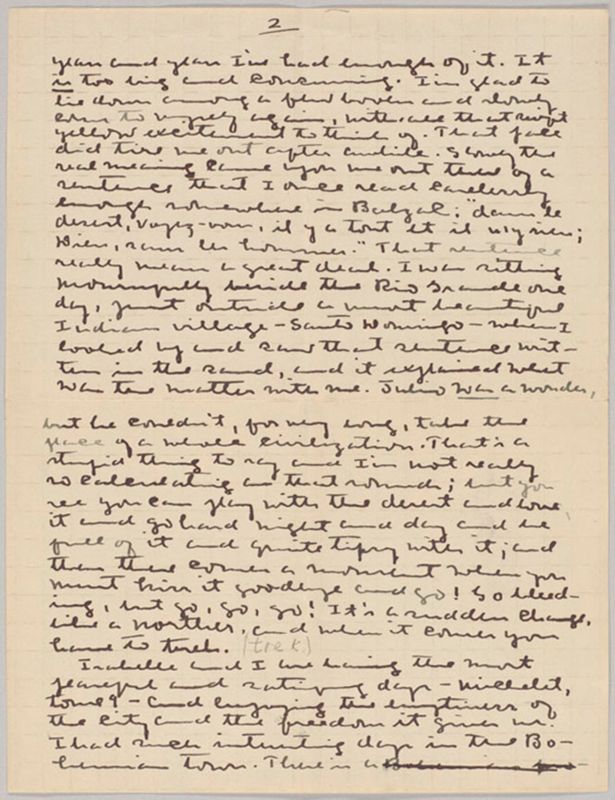 2
years and years I've had enough of it. It
is too big and consuming. I'm glad to
lie down among a few books and slowly
come to myself again, with all that swift
yellow excitement to think of. That face
did tire me out after awhile. Slowly the
real meaning came upon me out there of a
sentence that I once read carelessly
enough somewhere in Balzac; "dans le
desert, voyez-vous, il y a tout et il n'y rien;
Dieu, sans les hommes." That sentence
really means a great deal. I was sitting
mournfully beside the Rio Grande one
day, just outside a most beautiful
Indian village - Santo Domingo - when I
looked up and saw that sentence writ-
ten in the sand, and it explained what
was the matter with me. Julio was a wonder,
but he couldn't, for very long, take the
place of a whole civilization. That's a
stupid thing to say and I'm not really
so calculating as that sounds; but you
see you can play with the desert and love
it and go hard night and day and be
full of it and quite tipsy with it; and
then there comes a moment when you
must kiss it goodbye and go! Go bleed-
ing, but go, go, go! It's a sudden change,
like a norther, and when it comes you
have to trek. (trek)
Isabelle and I are having the most
peaceful and satisfying days - Michelet,
tome 9 - and enjoying the emptiness of
the city and the freedom it gives us.
I had such interesting days in the Bo-
hemian town. There is a